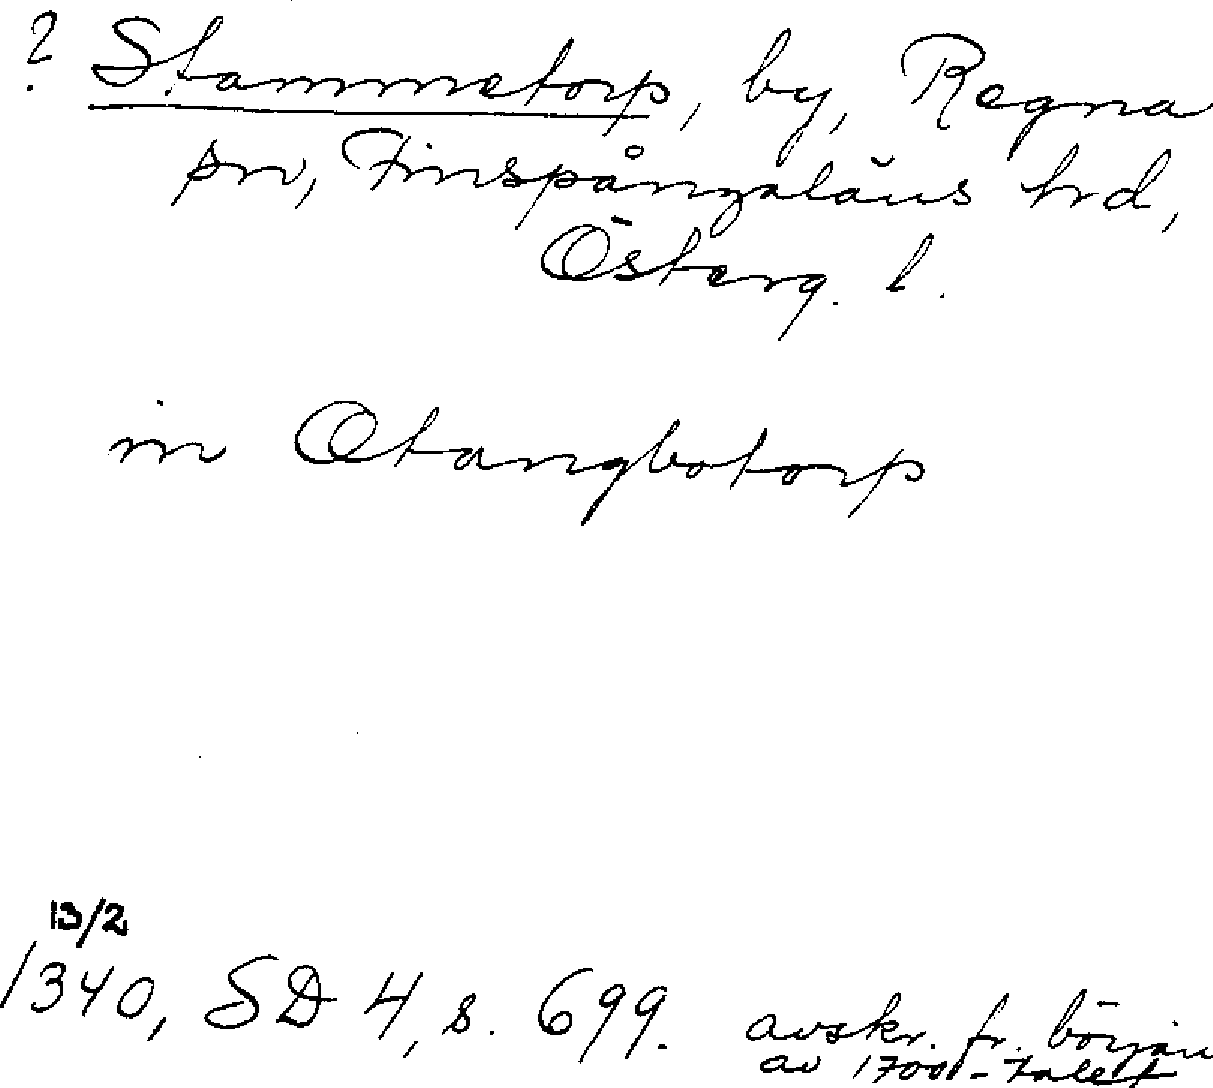 ? Stammetorp, by, Regna
sn, Finspångaläns hrd,
Österg. l.
in Otangbotorp
13/2
1340, SD 4, s. 699. avskr. fr. början
av 1700-talet